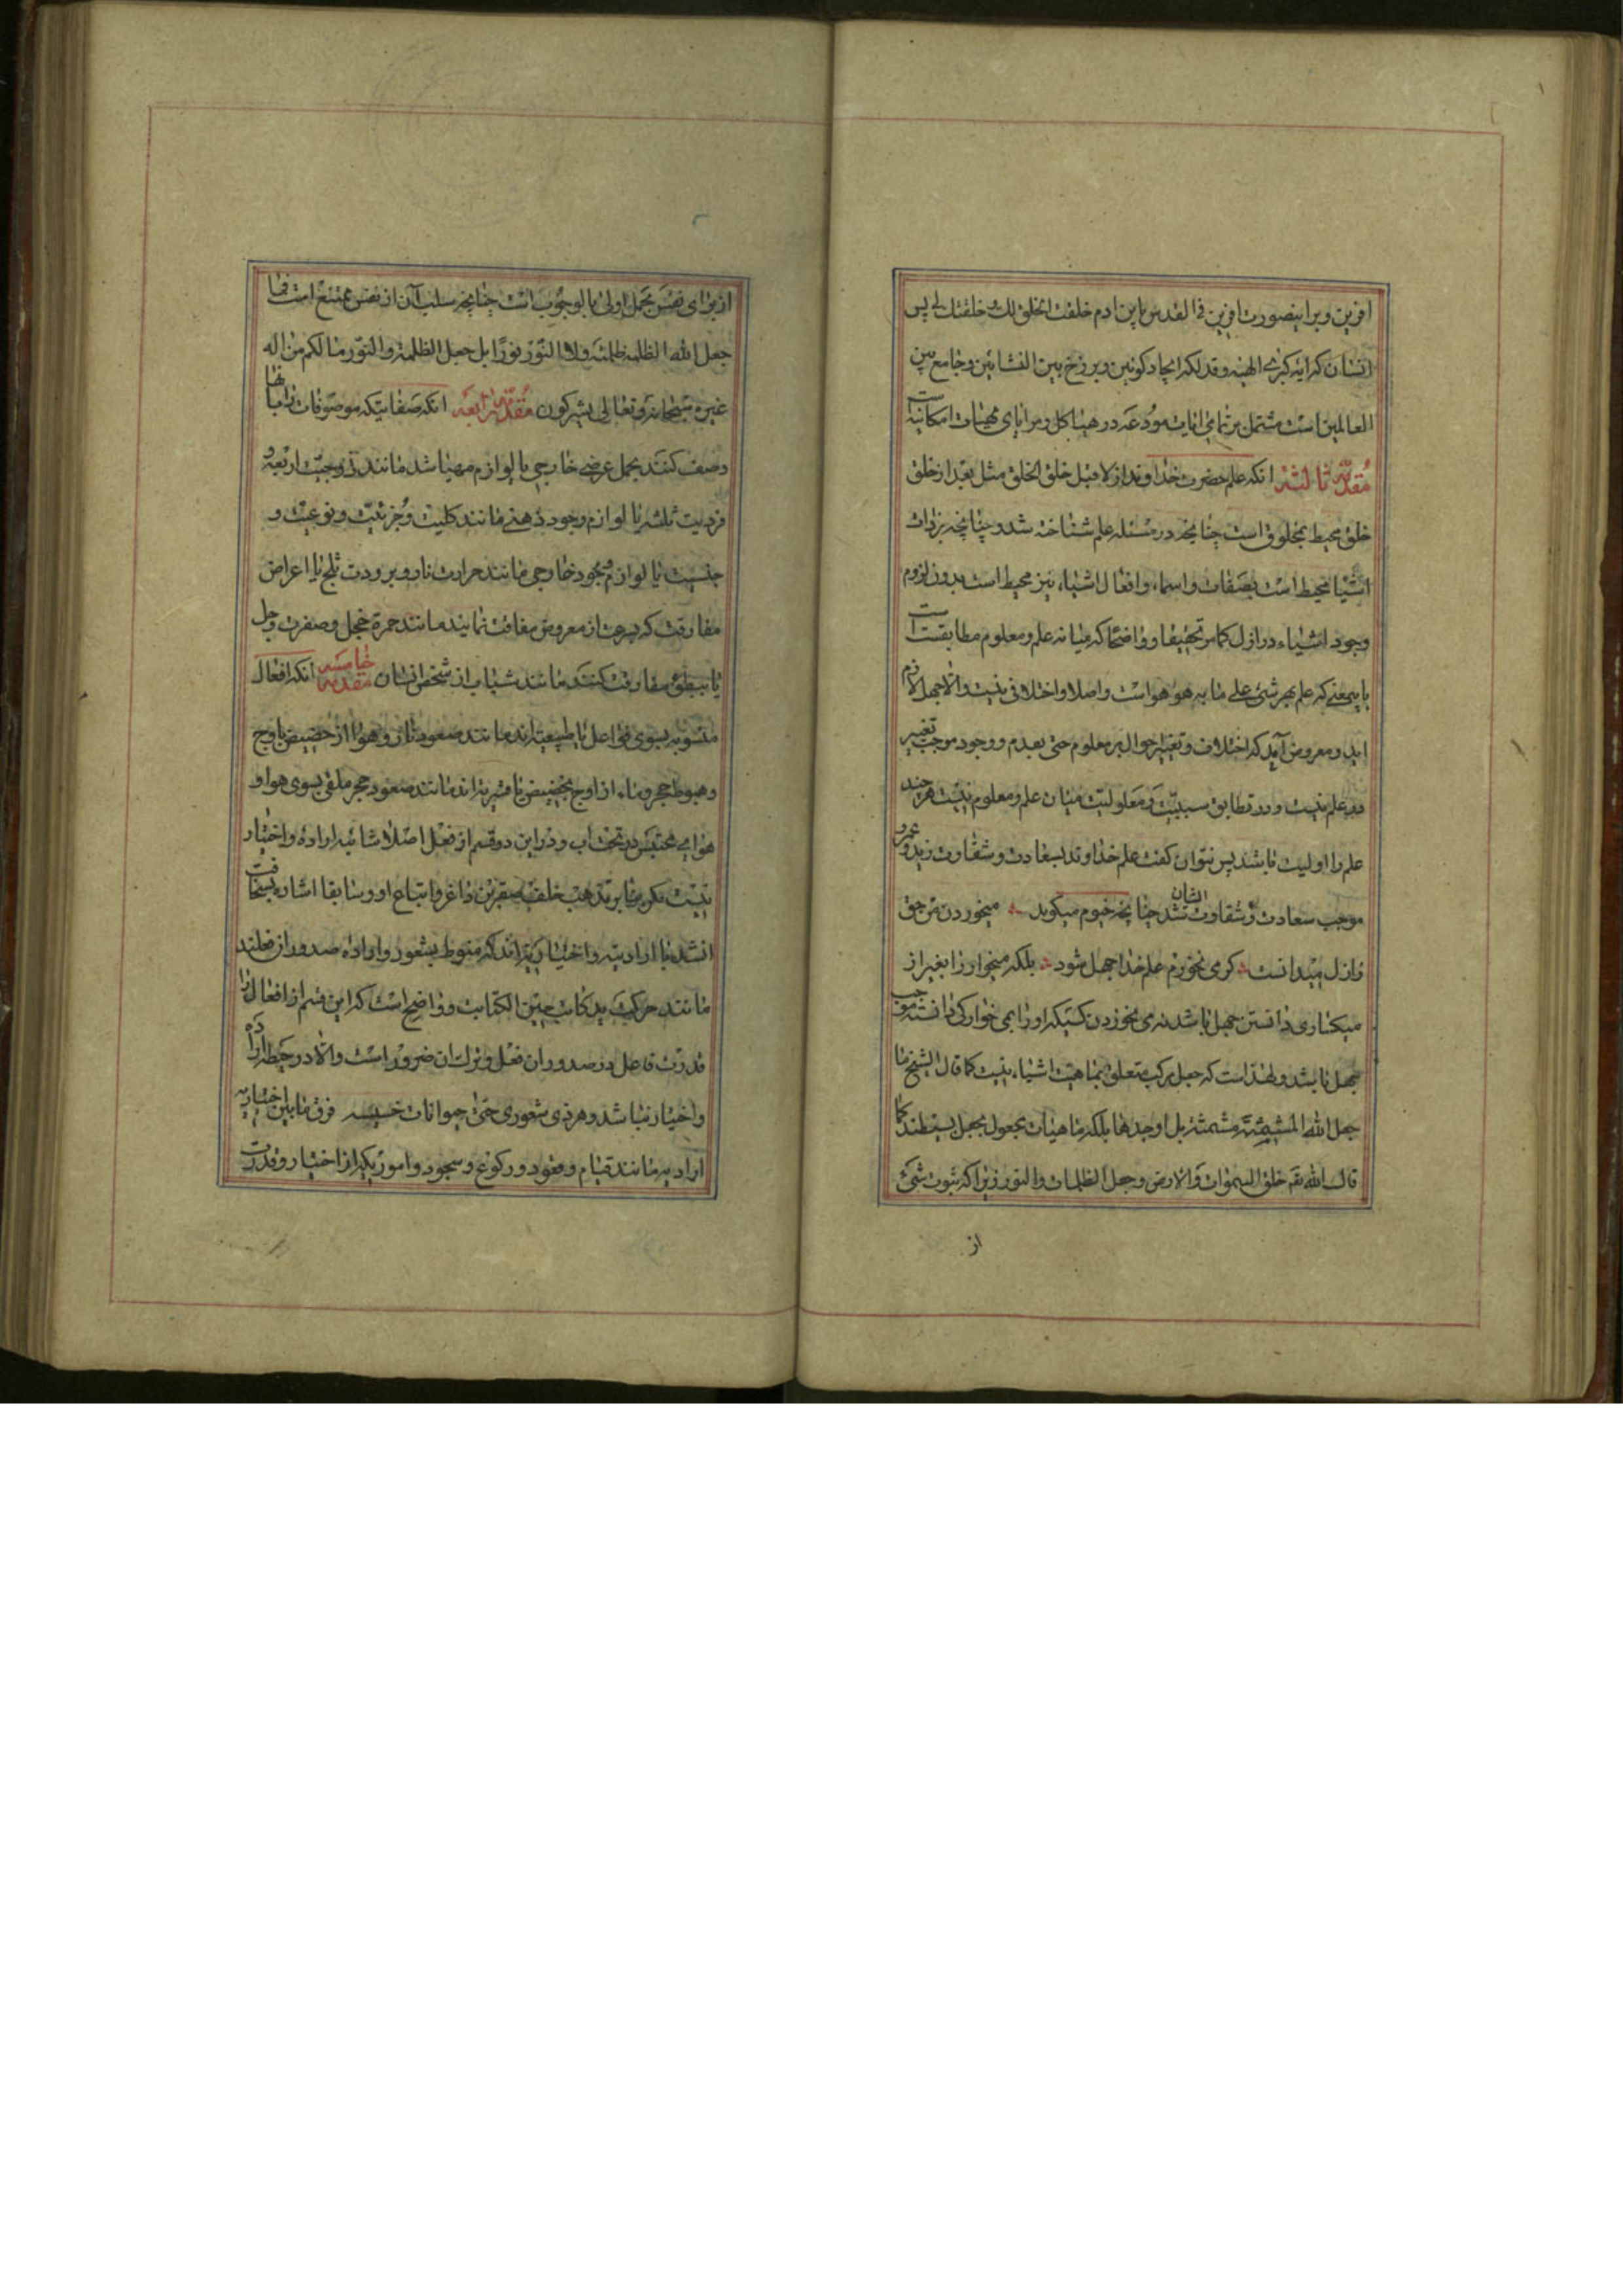 افرین ویرا بتصورت افرین فی القدس یابن ادم خلقت الخلق لک و خلقتک لی پس
انسان که ایه کبرے الهیه و فذلکه ایجاد کونین و برزخ بین النشاتین و جامع بین
العالمین است مشتمل بر تمامی انایت مودعه در هیاکل و مرایای مهیات امکانیه است
مقدمه ثالثه انکه علم حضرت خداوند ازلا قبل خلق الخلق مثل بعد از خلق
خلق محیط بمخلوق است چنانچه در مسئله علم شناخته شد و چنانچه بذات
اشیا محیط است بصفات و اسماء و افعال اشیاء نیز محیط است بدون لزوم
وجود اشیاء در ازل کما مر تحقیقا و واضحا که میانه علم و معلوم مطابقت است
بایمعنے که علم بهر شئ علی ما به هو هو است و اصلا و اختلافی نیست والا جهل لازم
اید و معروض آمد که اختلاف و تغییر احوال بر معلوم حتی بعدم و وجود موجب تغییر
در علم نیست و در تطابق سببیت و معلولیت میان علم و معلوم نیست هر چند
علم را اولیت باشد پس نتوان کفت علم خداوند بسعادت و شقاوت زید و عمرو
موجب سعادت و شقاوت ایشان شد چنانچه خیوم میکوید میخوردن من حق
ز ازل میدانست کر می نخورم علم خدا جهل شود بلکه میخوار را بغیر از
میکساری دانستن جهل باشد نه می نخوردن کسیکه او را بمی خوارکی دانسته موجب
جهل باشد و لهذا است که جعل مرکب متعلق بماهیت اشیاء نیست کما قال الشیخ ما
جعل الله المشمشة مشمشة بل اوجدها بلکه ماهیات مجعول بجعل بسیطند کما
قال الله تعه خلق السموات والارض و جعل الظلمات والنور زیرا که ثبوت شئ
از
از برای نفس بحمل اولی بالوجوب است چنانچه سلب آن از نفس ممتنع است فما
جعل الله الظلمة ظلمة و لا النور نورا بل جعل الظلمة والنور مالکم من اله
غیره سبحانه و تعالی یشرکون مقدمه رابعه انکه صفاتیکه موصوفات را بانها
وصف کنند بحمل عرضے خارجی یا لوازم مهیا شد مانند زوجیت اربعه و
فردیت ثلثه یا لوازم وجود ذهنے مانند کلیت و جزئیت و نوعیت و
جنسیت یا لوازم وجود خارجی مانند حرارت نار و برودت ثلج یا اعراض
مفارقت که بسرعت از معروض مفارقت نمایند مانند حمرة خجل و صفرت وجل
یا ببطئ مفارقت کنند مانند شباب از شخص انسان مقدمه خامسه انکه افعال
منسوبه بسوی فواعل یا طبیعیه اند مانند صعود نار و هوا از حضیض باوج
و هبوط حجر و ماء از اوج بحضیض یا قسریه اند مانند صعود حجر ملقی بسوی هوا و
هوایی محتبس در تحت اب و در این دو قسم از فعل اصلا شائبه اراده و اختیار
نیست مکر بنابر مذهب و اتباع او و سابقا اشاره بسخافت
انشد یا ارادیه و اختیاریه اند که منوط بشعور و اراده صدور از فعلند
مانند حرکت ید کاتب حین الکتابت و واضح است که این قسم از افعال را
قدرت فاعل در صدور ان فعل و ترک ان ضرور است والا در حیطه اراده
و اختیار نباشد و هر ذی شعوری حتی حیوانات خسیسه فرق مابین اختیاریه
ارادیه مانند قیام و قعود و رکوع و سجود و امور یکه از اختیار و قدرت